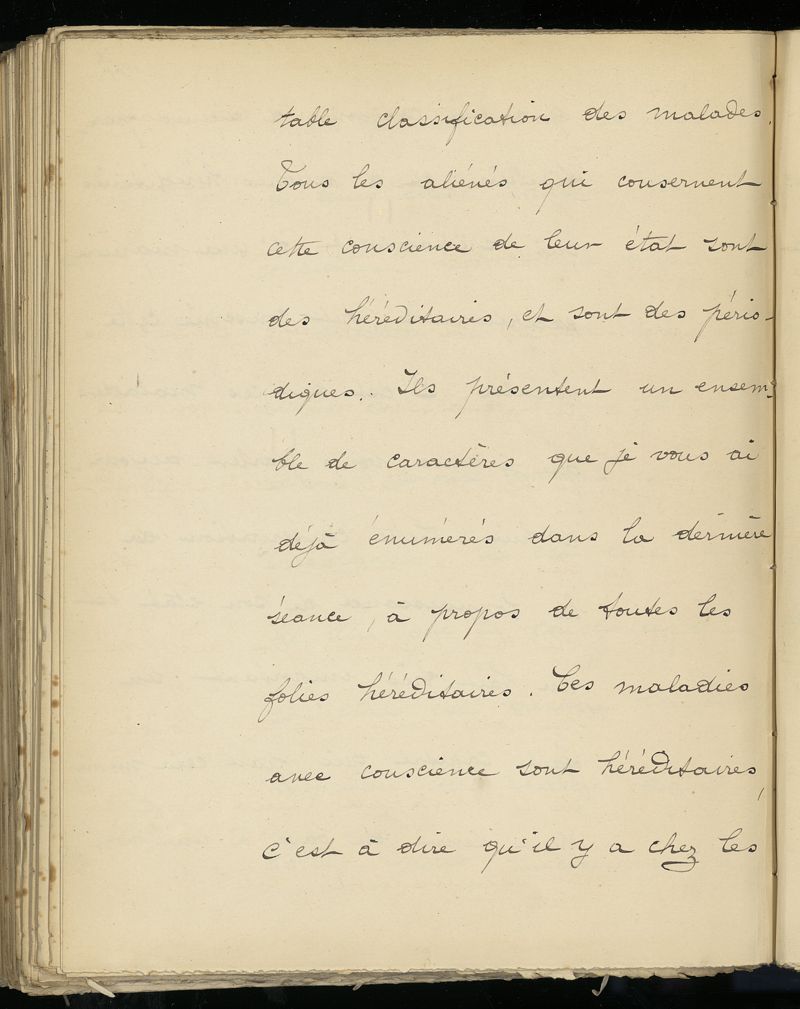 table classification des malades.
Tous les aliénés, qui conservent
cette conscience de leur état sont
des héréditaires, et sont des pério-
diques. Ils présentent un ensem-
ble de caractères que je vous ai
déjà énumérés dans la dernière
séance, à propos de toutes les
folies héréditaires. Ces maladies
avec conscience sont héréditaires,
c'est à dire qu'il y a chez les